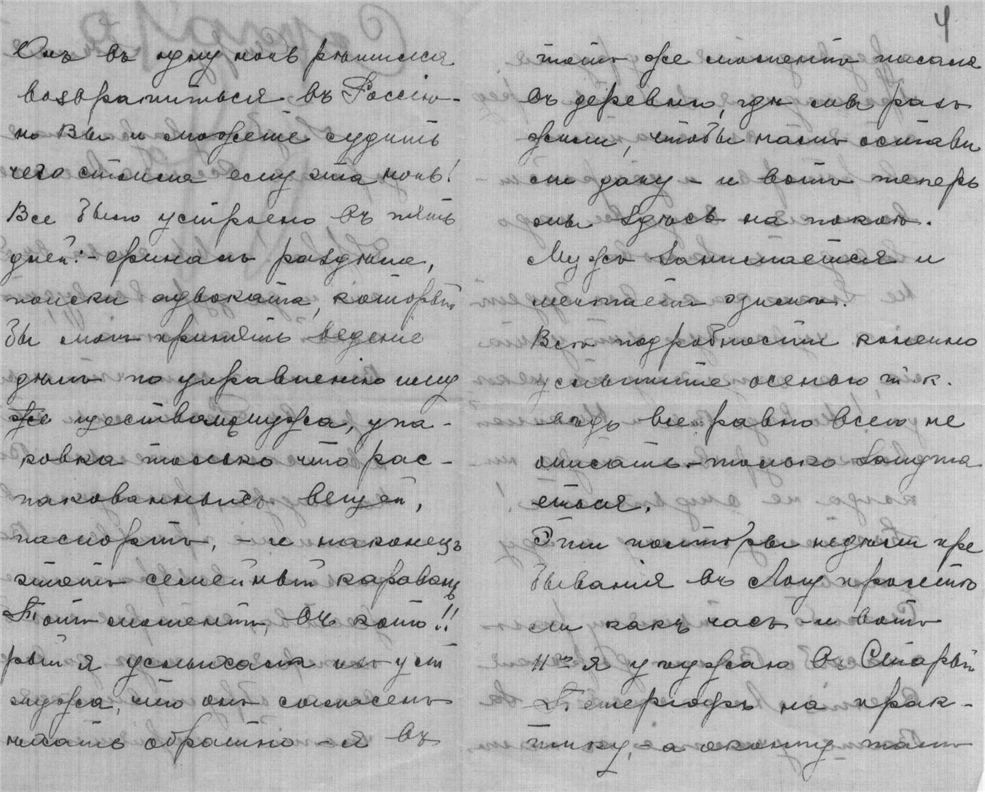 4
Онъ въ одну ночь рѣшился
возвратиться въ Россію –
но Вы и можете судить
чего стоила ему эта ночь!
Все было устроено въ пять
дней: – финалъ раздѣла,
поиски адвоката, который
бы могъ принять веденіе
дѣлъ по управленію иму
ществомъ мужа, упа-
ковка только что рас-
пакованныхъ вещей,
паспортъ, – и наконецъ
этотъ семейный караванъ!!
Тотъ моментъ, въ кото
рый я услыхала изъ устъ
мужа, что онъ согласенъ
ѣхать обратно – я въ
тотъ же моментъ писала
въ деревню, гдѣ мы разъ
жили, чтобы намъ остави
ли дачу – и вотъ теперь
мы здѣсь на покою.
Мужъ занимается и
мечтаетъ о зимѣ.
Всѣ подробности конечно
услышите осенью т. к.
вѣдь все равно всего не
описать – только
Эти полторы недѣли пре
быванія въ пролетѣ
ли какъ часъ – и вотъ
11го я уѣзжаю въ Старый
Петергофъ на прак-
тику, – а окончу тамъ